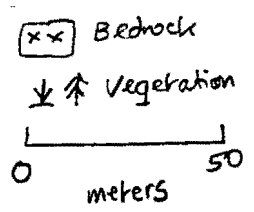 Bedrock
Vegetation
0 50
meters